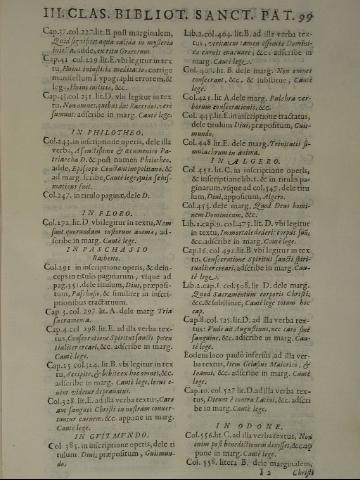 III. CLAS. BIBLIOT. SANCT. PAT. 99
Cap.37.col 227.lit.B. post marginalem,
Cap.41. col. 229. lit.B. vbi legitur in tex-
manifestum Typographi errorem, &
lege,
Cap.45. col 231. lit.D. vbi legitur in tex-
adscribe in marg. Cautè lege.
IN PHILOTHEO.
Col.243. in inscriptione operis, dele illa
verba,
D. & post nomen Philotheo,
adde, Episcopo Constantinopolitano, &
ad marg. scribe, Cautè legequia schis-
maticus fuit.
Col.247. in titulo paginæ, dele D.
IN FLORO.
Col.272. lit.D. vbi legitur in textu, Non
sunt quærendum inferorum animæ, ad-
scribe in marg. Cautè lege.
IN PASCHASIO
Ratberto.
Col.291 in inscriptione operis, & dein-
ceps in titulis paginarum, vsque ad
pag.351. dele titulum, Diui, præposi-
tum, Paschasio, & similiter in inscri-
ptionibus tractatuum.
Cap 3. col. 297. lit. A. dele marg. Tria
Sacramenta.
Cap.4. col 298. lit. E. ad illa verba tex-
tus, Consecratione Spiritus sancti poten-
tialiter creari, &c. adscribe in marg.
Cautè lege.
Cap.15. col 324. lit. B. vbi legitur in tex-
tu, Accipite, & bibite ex hoc omnes, &c.
adscribe in marg. Cautè lege,
Col.328. lit.E. ad illa verba textus, Caro
Christi in nostram conuer-
tuntur carnem. &c. appone in marg.
Cautè lege.
IN GVITMVNDO.
Col 385. in inscriptione operis, dele ti
tulum Diui, præpositum, Guitmun-
do.
Lib.2.col.404. lit.B. ad illa verba tex-
&c. adscribe in
marg. Cautè lege.
Col. 406. lit. B. dele marg. Non omnes
conferunt, &c. & substitue, Cautè
lege.
Col.421. lit. A. dele marg. Pulchra ver-
borum consecrationis, &c.
Col. 445. lit.E. in inscriptione tractatus,
dele titulum Diui, præpositum, Guit-
mundo.
Col.448 lit.E. dele marg. Trinitatis si-
militudinem in anima.
IN ALGERO.
Col 451. lit.C. in inscriptione operis,
& inscriptione lib.1. & in titulis pa-
ginarum, vsque ad col.547. dele titu-
lum, Diui, appositum, Algero.
Col.455. dele marg. Quod Deus homi-
nem Dominicum, &c.
Lib.1.cap.9. col.475. lit. D. vbi legitur
in textu, Immortalè dedit corpus suũ,
&c. adscribe in marg. Cautè lege.
Cap.16. col 492. lit.B. vbi legitur in tex-
tu. Consecratione Spiritus sancti spiri-
tualiter creari, adscribe in marg. Cau-
tè lege.
Lib.2.cap.8. col.508. lit. D. dele marg.
Quod Sacramentum corporis Christi,
&c. & substitue, Cautè lege totum hoc
cap.
Cap.8. col. 525. lit.D. ad illa verba tex-
tus: Vnde ait Augustinus, nec caro sine
sanguine, &c. adscribe in marg. Cau-
tè lege.
Eodem loco paulò inferiùs ad illa ver-
ba textus, Item Gelasius Maiorico, &
Ioanni, &c. adscribe in marg. Cautè
lege.
Cap.10. col.527 lit.D. ad illa verba tex-
tus, Dicunt è contra Latini, &c. adscri
be in marg. Cautè lege.
IN ODONE.
Col.556. lit.C. ad illa verba textus, Non
enim post benedictionem &c. ad-
scribe in marg. Cautè lege.
Col. 558. litera B. dele marginalem,
I 2 Christi